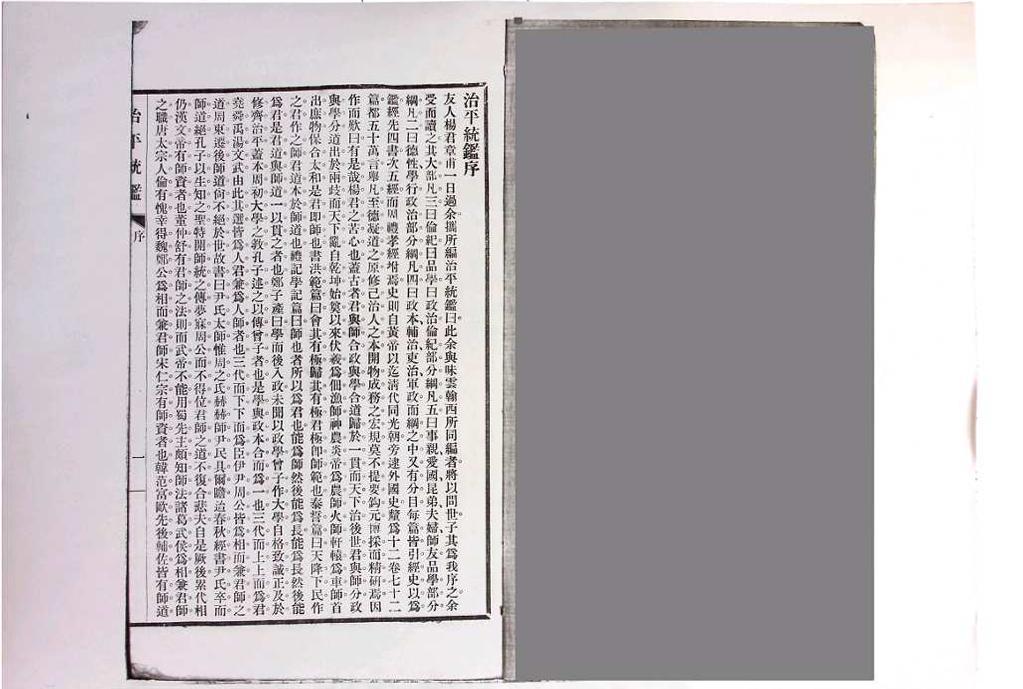 治平統鑑序
友人楊君章甫一日過余攜所編治平統鑑曰此余與味雲翰西所同編者將以問世子其爲我序之余
受而讀之其大部凡三曰倫紀曰品學曰政治倫紀部分綱凡五曰事親愛國昆弟夫婦師友品學部分
綱凡二曰德性學行政治部分綱凡四曰政本輔治吏治軍政而綱之中又有分目每篇皆引經史以爲
鑑經先四書次五經而周禮孝經坿焉史則自黃帝以迄清代同光朝旁逮外國史釐爲十二卷七十二
篇都五十萬言舉凡至德凝道之原修己治人之本開物成務之宏規莫不提要鈎元博採而精研焉因
作而歎曰有是哉楊君之苦心也蓋古者君與師合政與學合道歸於一貫而天下治後世君與師分政
與學分道出於兩歧而天下亂自乾坤始奠以來伏羲爲佃漁師神農炎帝爲農師火師軒轅爲車師首
出庶物保合太和是君即師也書洪範篇曰會其有極歸其有極君極即師範也泰誓篇曰天降下民作
之君作之師君道本於師道也禮記學記篇曰師也者所以爲君也能爲師然後能爲長能爲長然後能
爲君是君道與師道一以貫之者也鄭子產曰學而後入政未聞以政學曾子作大學自格致誠正及於
修齊治平蓋本周初大學之教孔子述之以傳曾子者也是學與政本合而爲一也三代而上上而爲君
堯舜禹湯文武由此其選皆爲人君兼爲人師者也三代而下下而爲臣伊尹周公皆爲相而兼君師之
道周東遷後師道尙不絕於世故書曰尹氏太師惟周之氐赫赫師尹民具爾瞻迨春秋經書尹氏卒而
師道絕孔子以生知之聖特開師統之傳夢寐周公而不得位君師之道不復合悲夫自是厥後累代相
仍漢文帝有師資者也董仲舒有君師之法則而武帝不能用蜀先主頗知師法諸葛武侯爲相兼君師
之職唐太宗人倫有愧幸得魏鄭公爲相而兼君師宋仁宗有師資者也韓范富歐先後輔佐皆有師道
治平統鑑
序
一